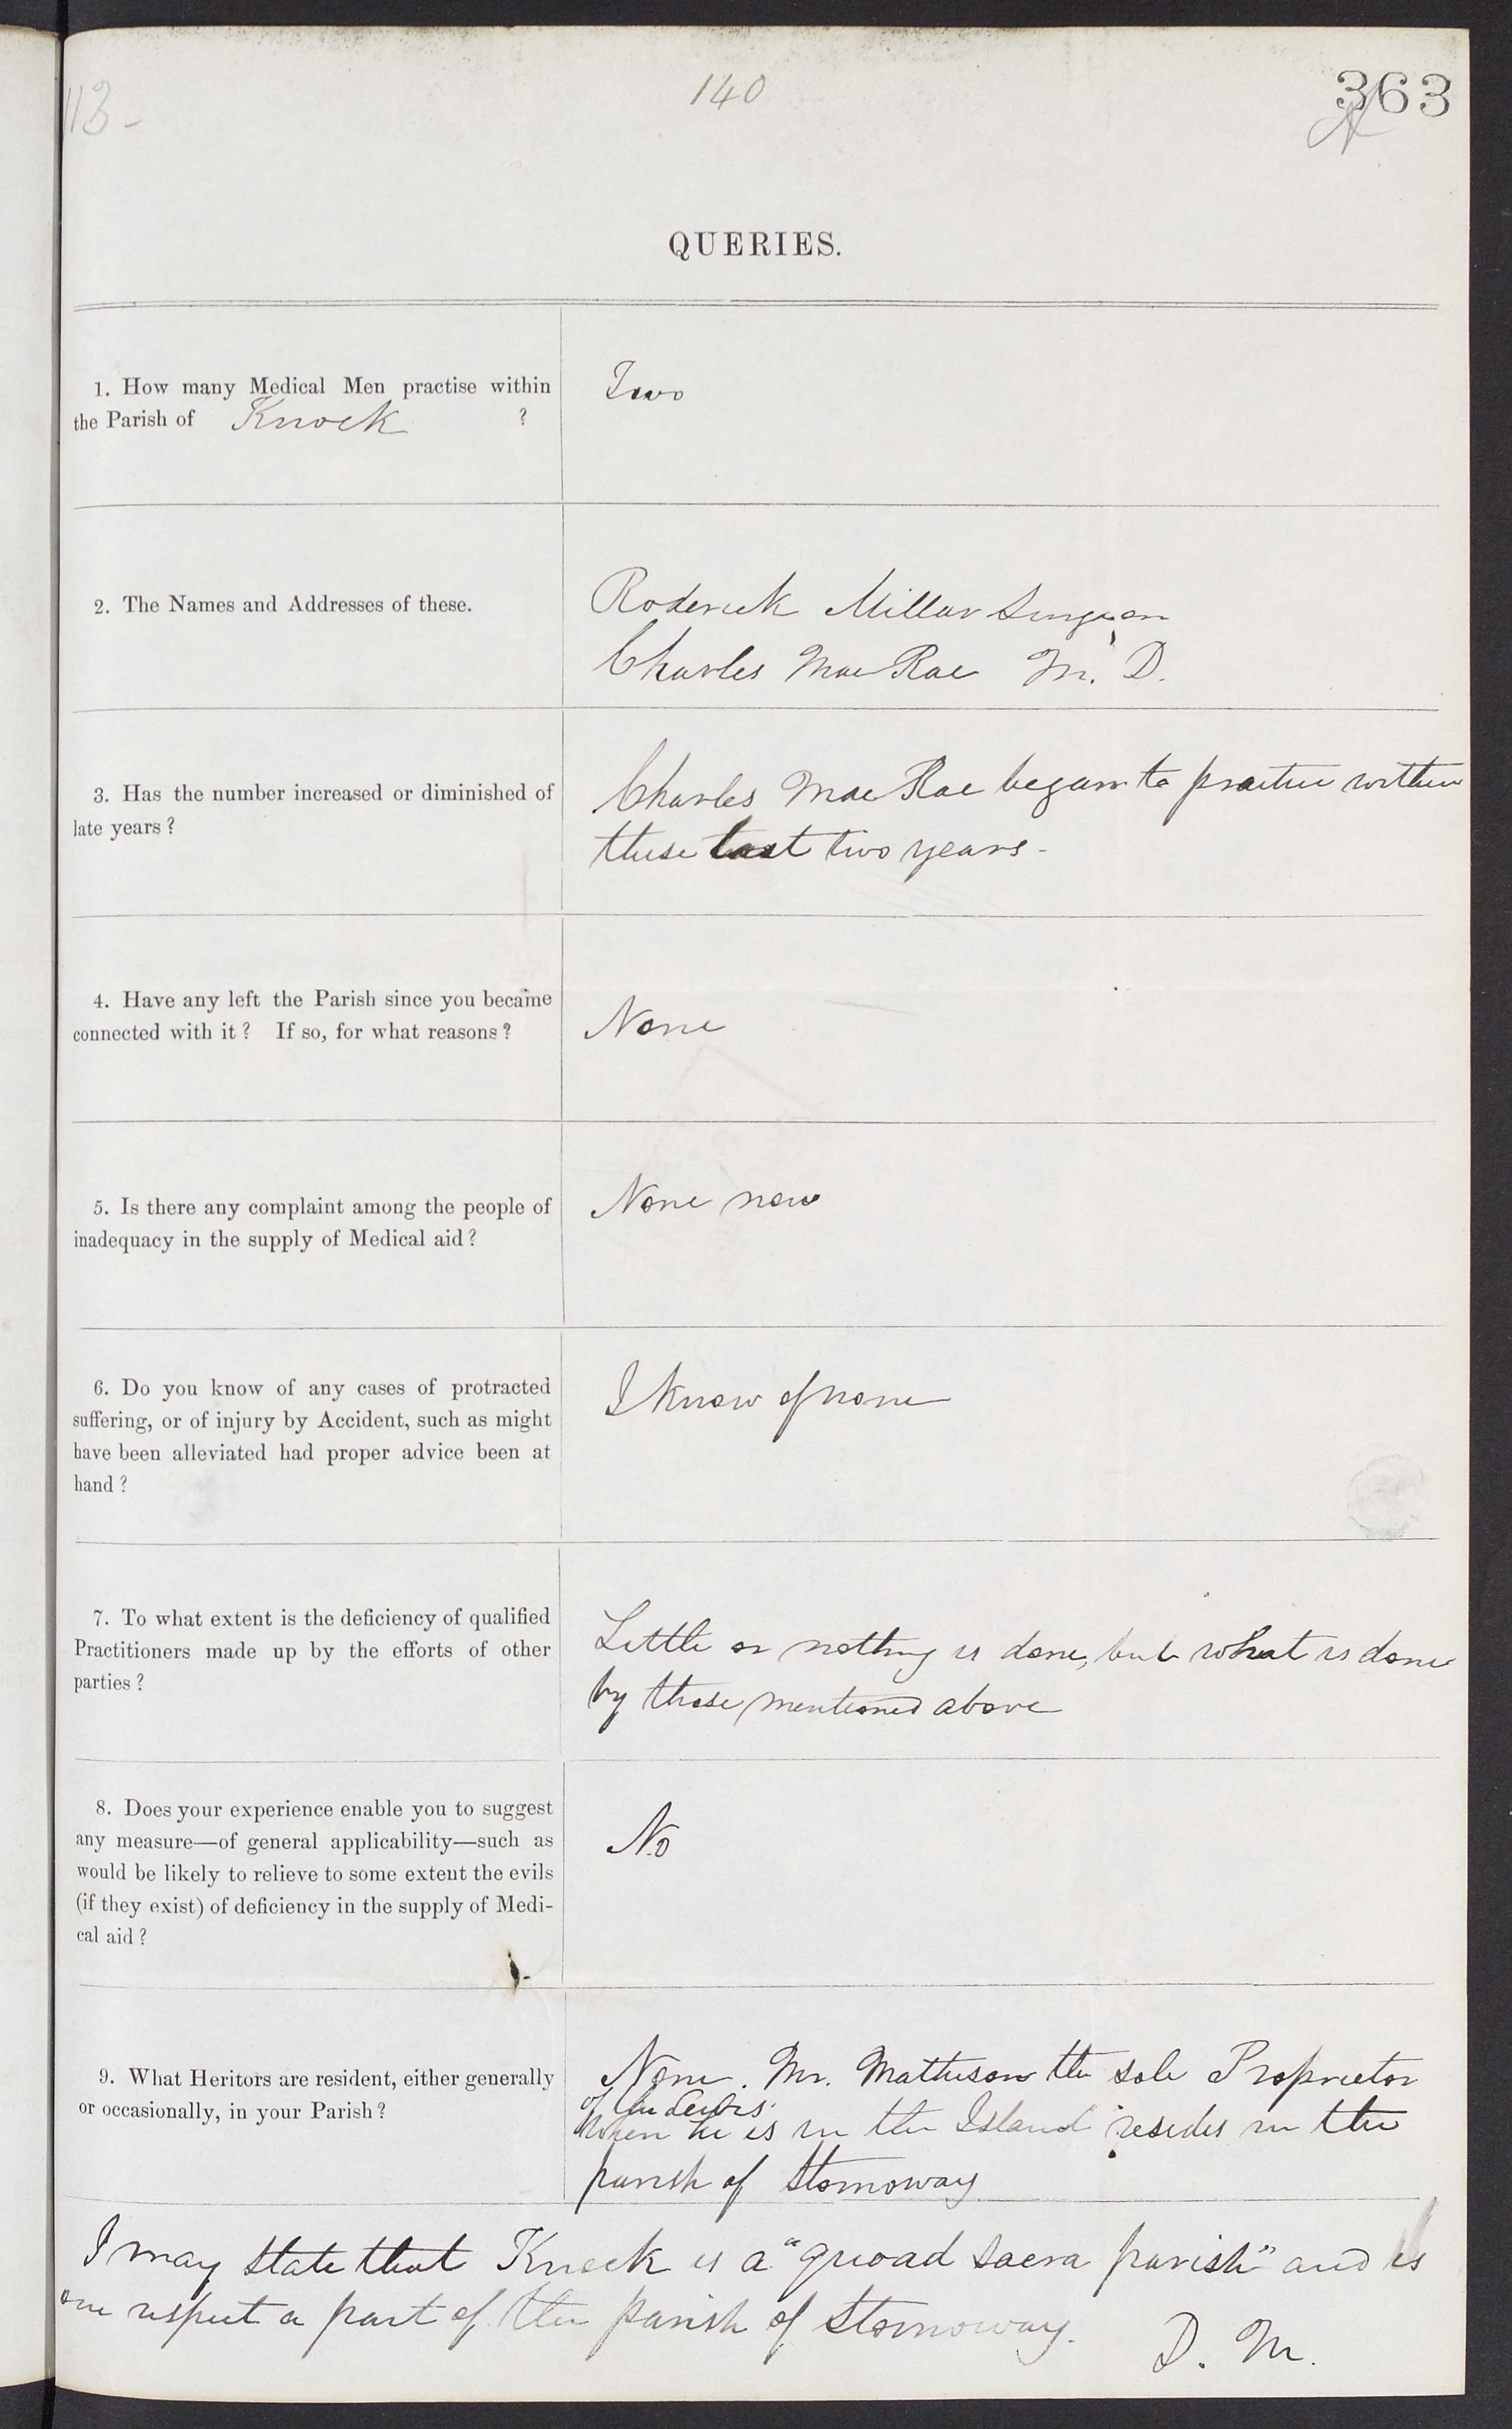 113-
140
363
QUERIES.
1. How many Medical Men practise within
the Parish of Knock ?
Two
2. The Names and Addresses of these.
Roderick Millar Surgeon
Charles MacRae M. D.
3. Has the number increased or diminished of
late years?
Charles MacRae began to practice within
these last two years -
4. Have any left the Parish since you became
connected with it? If so, for what reasons?
None
5. Is there any complaint among the people of
inadequacy in the supply of Medical aid?
None now
6. Do you know of any cases of protracted
suffering, or of injury by Accident, such as might
have been alleviated had proper advice been at
hand?
I know of none
7. To what extent is the deficiency of qualified
Practitioners made up by the efforts of other
parties?
Little or nothing is done, but what is done
by those mentioned above
8. Does your experience enable you to suggest
any measure—of general applicability—such as
would be likely to relieve to some extent the evils
(if they exist) of deficiency in the supply of Medi-
cal aid?
No
9. What Heritors are resident, either generally
or occasionally, in your Parish?
None. Mr. Matheson the sole Proprietor
of the Lewis
when he is in the Island resides in the
parish of Stornoway
I may state that Knock is a "quoad sacra parish" and is
one respect a part of the parish of Stornoway.
D. M.